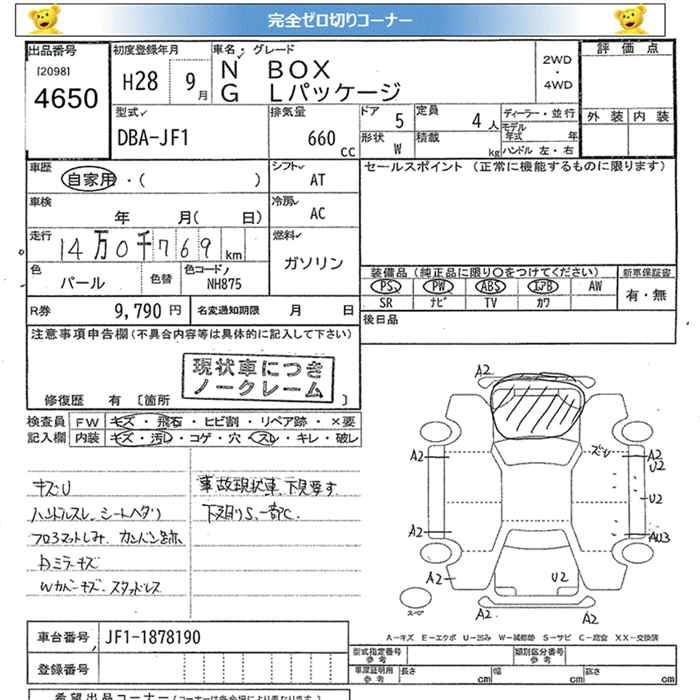 完全ゼロ切りコーナー
出品番号
[2098]
4650
初度登録年月
H28 9月
車名・グレード
N BOX
G Lパッケージ
2WD
・
4WD
評価点
外装 内装
型式
DBA-JF1
排気量
660 cc
ドア 5
定員 4人
形状 W
積載 kg
ディーラー・並行
モデル年式 年
ハンドル 左・右
車歴
自家用・( )
シフト AT
セールスポイント (正常に機能するものに限ります)
車検
年 月( 日)
冷房 AC
走行
14万0千769km
燃料
ガソリン
色
パール
色替
色コード
NH875
装備品(純正品に限り○をつけてください)
PS PW ABS エアB AW
SR ナビ TV カワ
新車保証書
有・無
R券 9,790円
名変通知期限 月 日
後日品
注意事項申告欄(不具合内容等は具体的に記入して下さい)
現状車につき
ノークレーム
修復歴 有 [箇所 ]
検査員
記入欄
FW キズ・飛石・ヒビ割・リペア跡・×要
内装 キズ・汚レ・コゲ・穴・スレ・キレ・破レ
キズU
ハンドルスレ、シートヘタリ
フロアマットしみ、カンバン跡
Dミラーキズ
Wカバーキズ、スタッドレス
事故現状車、下見要す
下廻りS、一部C、
A2
A2
A2
A2
A2
A2
A2
ズU
A2
U2
U2
AU3
U2
スペア
A-キズ E-エクボ U-凹み W-補修跡 S-サビ C-腐食 XX-交換済
車台番号 JF1-1878190
登録番号
型式指定番号
参考
類別区分番号
参考
車庫証明用
参考
長さ cm 幅 cm 高さ cm
希望出品コーナー